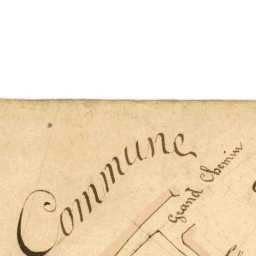 Commune
Grand Chemin